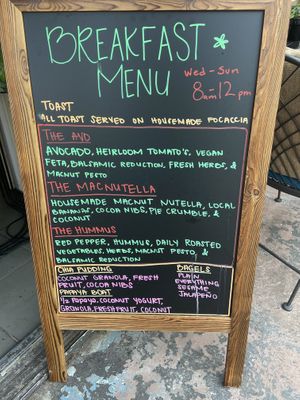 BREAKFAST
MENU
Wed - Sun
8am-12pm
TOAST
ALL TOAST SERVED ON HOUSEMADE FOCACCIA
THE AVO
AVOCADO, HEIRLOOM TOMATO'S, VEGAN
FETA, BALSAMIC REDUCTION, FRESH HERBS, &
MACNUT PESTO
THE MACNUTELLA
HOUSEMADE MACNUT NUTELLA, LOCAL
BANANAS, COCOA NIBS, PIE CRUMBLE, &
COCONUT
THE HUMMUS
RED PEPPER, HUMMUS, DAILY ROASTED
VEGETABLES, HERBS, MACNUT PESTO, &
BALSAMIC REDUCTION
CHIA PUDDING
COCONUT GRANOLA, FRESH
FRUIT, COCOA NIBS
PAPAYA BOAT
1/2 PAPAYA, COCONUT YOGURT,
GRANOLA, FRESH FRUIT, COCONUT
BAGELS
PLAIN
EVERYTHING
SESAME
JALAPEÑO